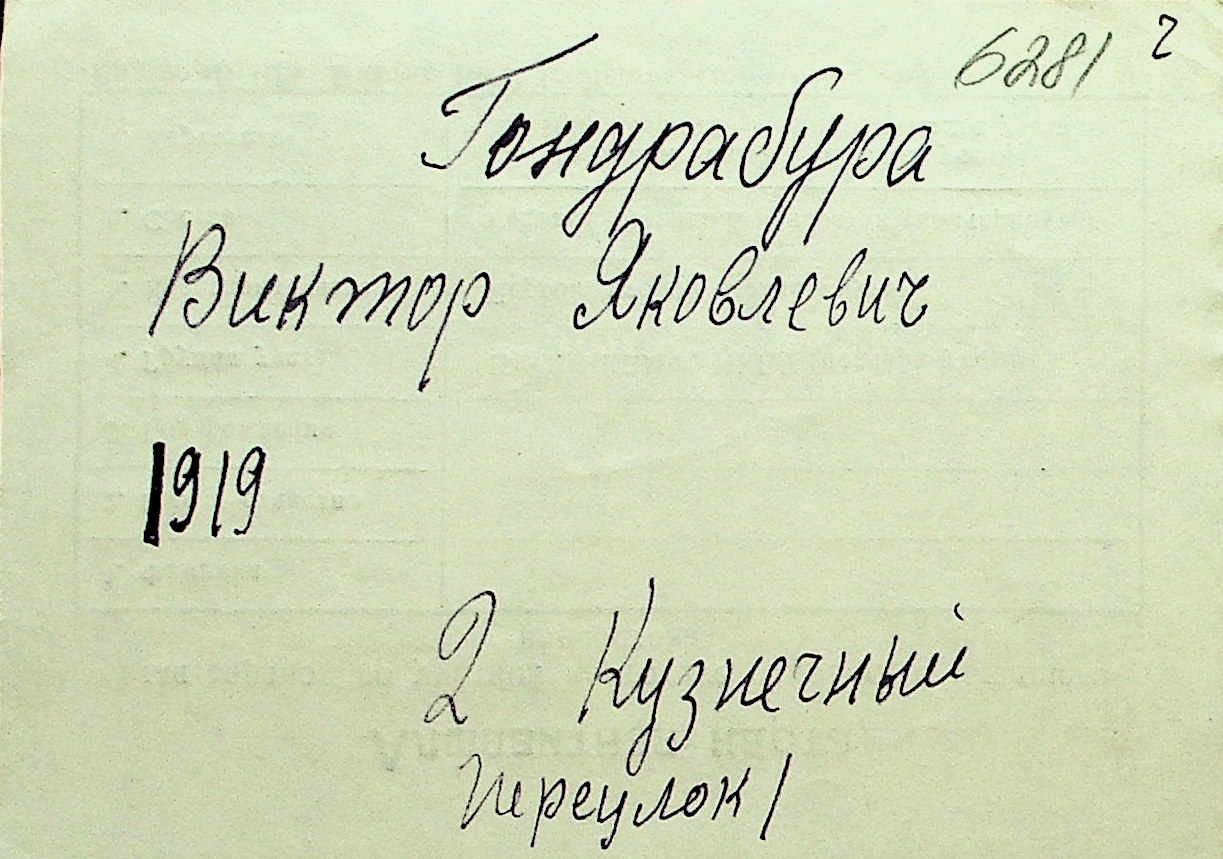 6281 г
Гондрабура
Виктор Яковлевич
1919
2 Кузнечный
переулок 1